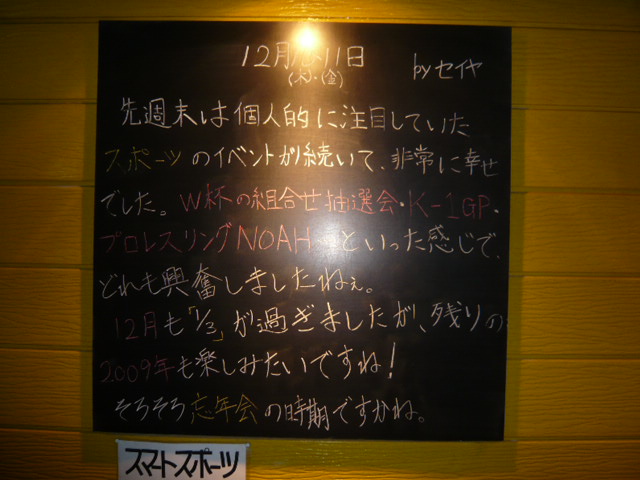 12月10・11日 by セイヤ
(木)・(金)
先週末は個人的に注目していた
スポーツのイベントが続いて、非常に幸せ
でした。W杯の組合せ抽選会・K-1GP・
プロレスリングNOAH といった感じで、
どれも興奮しましたねぇ。
12月も「1/3」が過ぎましたが、残りの
2009年も楽しみたいですね!
そろそろ忘年会の時期ですかね。
スマートスポーツ